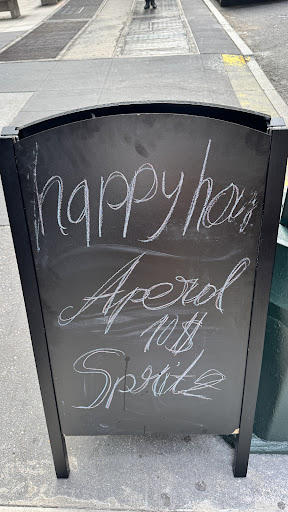 happy hour
Aperol
10$
Spritz